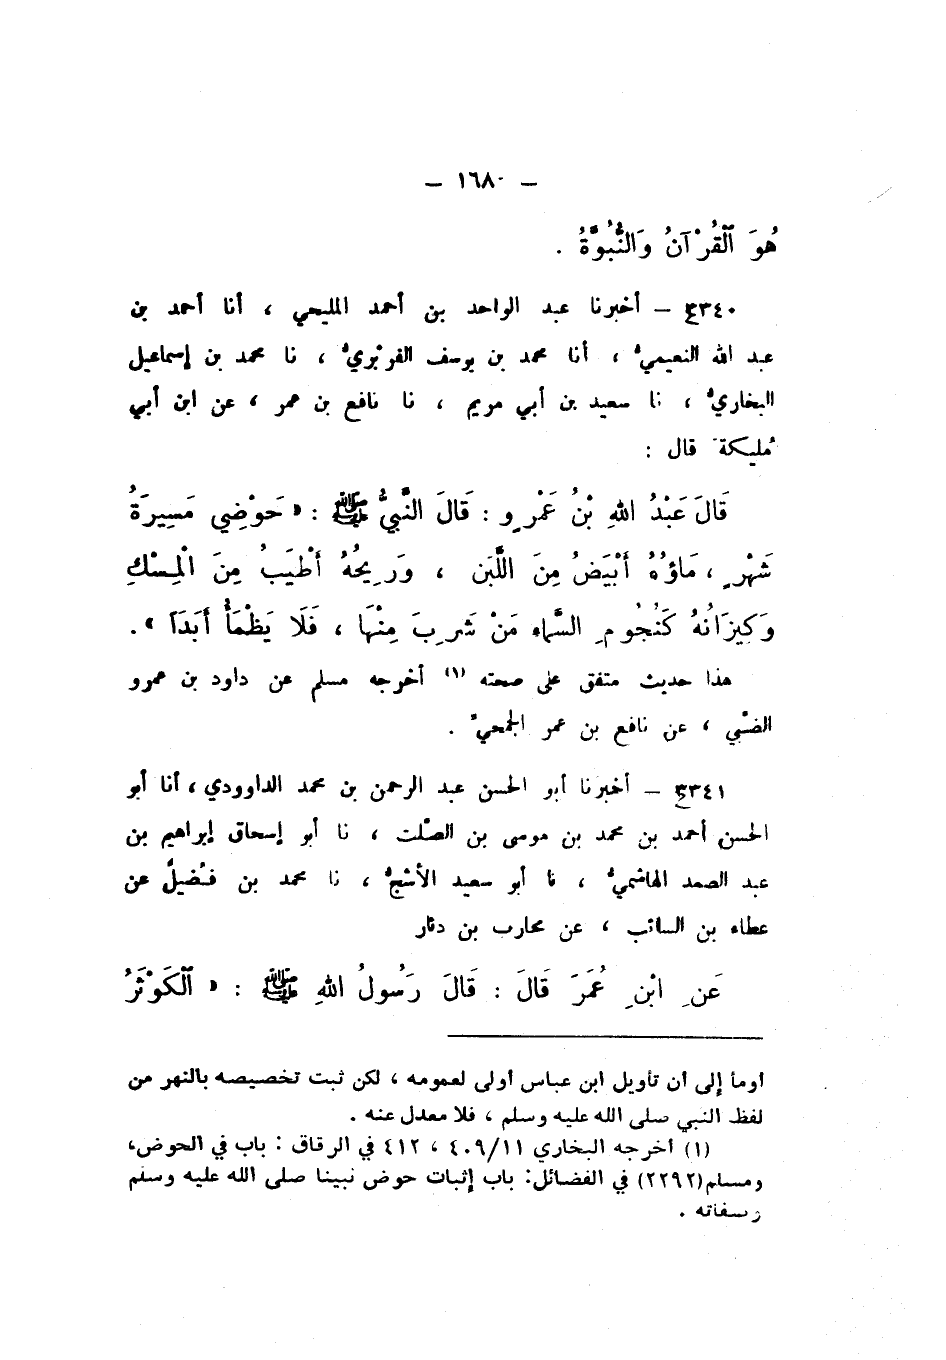 – ١٦٨٠ –
هُوَ ٱلْقُرْآنُ وَالنُّبُوَّةُ .
٤٣٤٠ – أخبرنا عبد الواحد بن أحمد المليحي ، أنا أحمد بن
عبد الله النعيميُّ ، أنا محمد بن يوسف الفرَبْريُّ ، نا محمد بن إسماعيل
البخاريُّ ، نا سعيد بن أبي مريم ، نا نافع بن عمر ، عن ابن أبي
مُليكة قال :
قَالَ عَبْدُ اللهِ بْنُ عَمْرٍو : قَالَ النَّبِيُّ ﷺ : « حَوْضِي مَسِيرَةُ
شَهْرٍ ، مَاؤُهُ أَبْيَضُ مِنَ اللَّبَنِ ، وَرِيحُهُ أَطْيَبُ مِنَ الْمِسْكِ
وَكِيزَانُهُ كَنُجُومِ السَّمَاءِ مَنْ شَرِبَ مِنْهَا ، فَلَا يَظْمَأُ أَبَدَاً » .
هذا حديث متفق على صحته (١) أخرجه مسلم عن داود بن عمرو
الضبّي ، عن نافع بن عمر الجمحيّ .
٤٣٤١ – أخبرنا أبو الحسن عبد الرحمن بن محمد الداوودي ، أنا أبو
الحسن أحمد بن محمد بن موسى بن الصّلت ، نا أبو إسحاق إبراهيم بن
عبد الصمد الهاشميُّ ، نا أبو سعيد الأشجُّ ، نا محمد بن فُضيل عن
عطاء بن السائب ، عن محارب بن دثار
عَنِ ابْنِ عُمَرَ قَالَ : قَالَ رَسُولُ اللهِ ﷺ : « ٱلْكَوْثَرُ
أومأ إلى أن تأويل ابن عباس أولى لعمومه ، لكن ثبت تخصيصه بالنهر من
لفظ النبي صلى الله عليه وسلم ، فلا معدل عنه .
(١) أخرجه البخاري ٤٠٩/١١ ، ٤١٢ في الرقاق : باب في الحوض،
ومسلم(٢٢٩٢) في الفضائل: باب إثبات حوض نبينا صلى الله عليه وسلم
وصفاته .